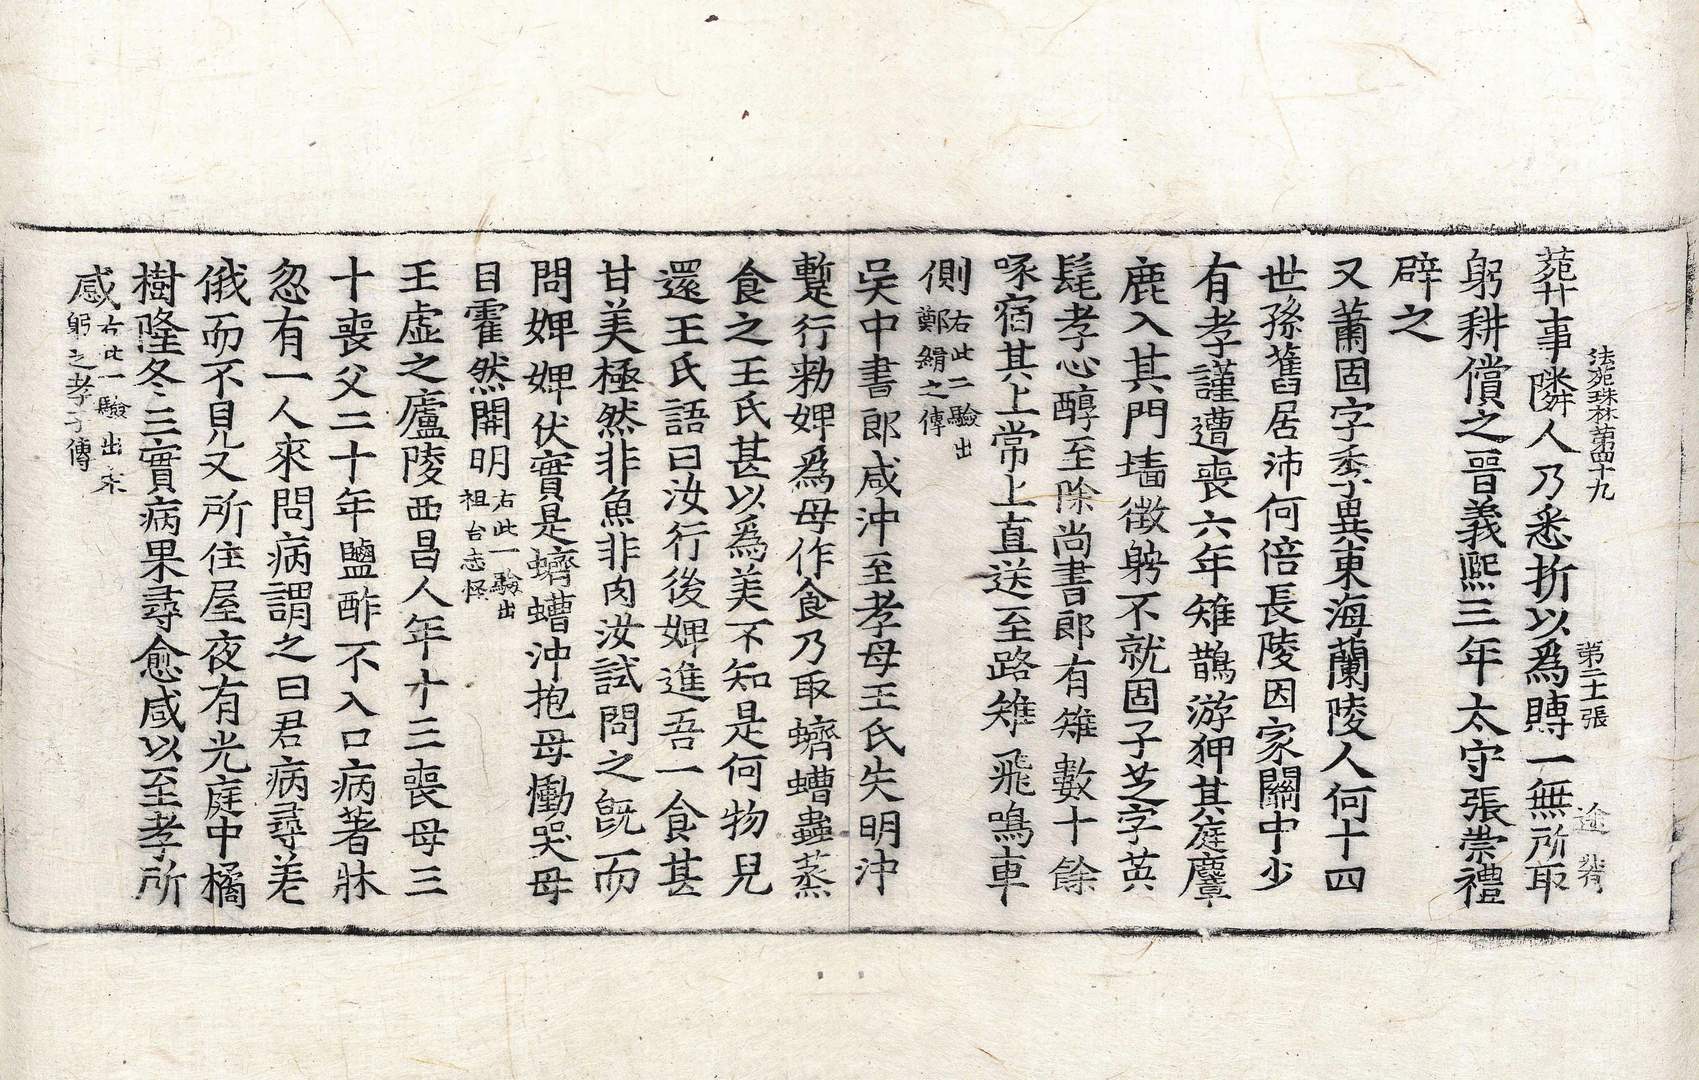 法苑珠林第四十九　第二十一張
葬事隣人乃悉折以爲賻一無所取
躬耕償之晉義熙三年太守張崇禮
辟之
又蕭固字秀異東海蘭陵人何十四
世孫舊居沛何倍長陵因家關中少
有孝謹遭喪六年雉鵲游狎其庭麞
鹿入其門墻徵躬不就固子芝字英
髦孝心醇至除尚書郎有雉數十餘
啄宿其上常上直送至路雉飛鳴車
側右此二驗出鄭緝之傳
吳中書郎咸沖至孝母王氏失明沖
蹔行勑婢爲母作食乃取蠐螬蟲蒸
食之王氏甚以爲美不知是何物兒
還王氏語曰汝行後婢進吾一食甚
甘美極然非魚非肉汝試問之旣而
問婢婢伏實是蠐螬沖抱母慟哭母
目霍然開明右此一驗出祖台志怪
王虛之廬陵西昌人年十三喪母三
十喪父二十年鹽酢不入口病著牀
忽有一人來問病謂之曰君病尋差
俄而不見又所住屋夜有光庭中橘
樹隆冬三實病果尋愈咸以至孝所
感右此一驗出宋躬之孝子傳